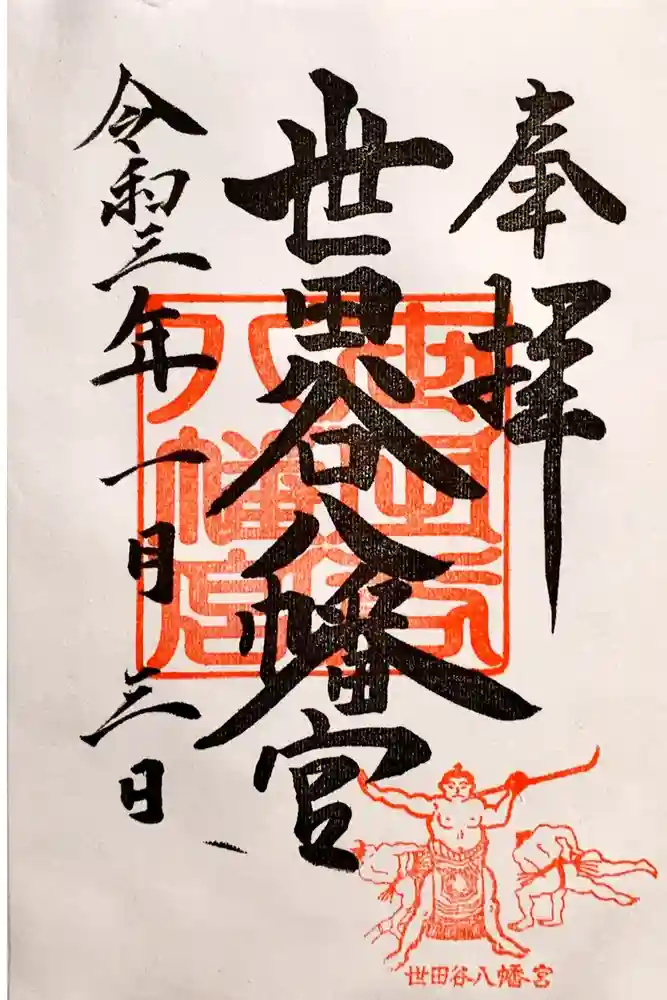 奉拝
世田谷八幡宮
令和三年一月三日
世田谷
八幡宮
世田谷八幡宮